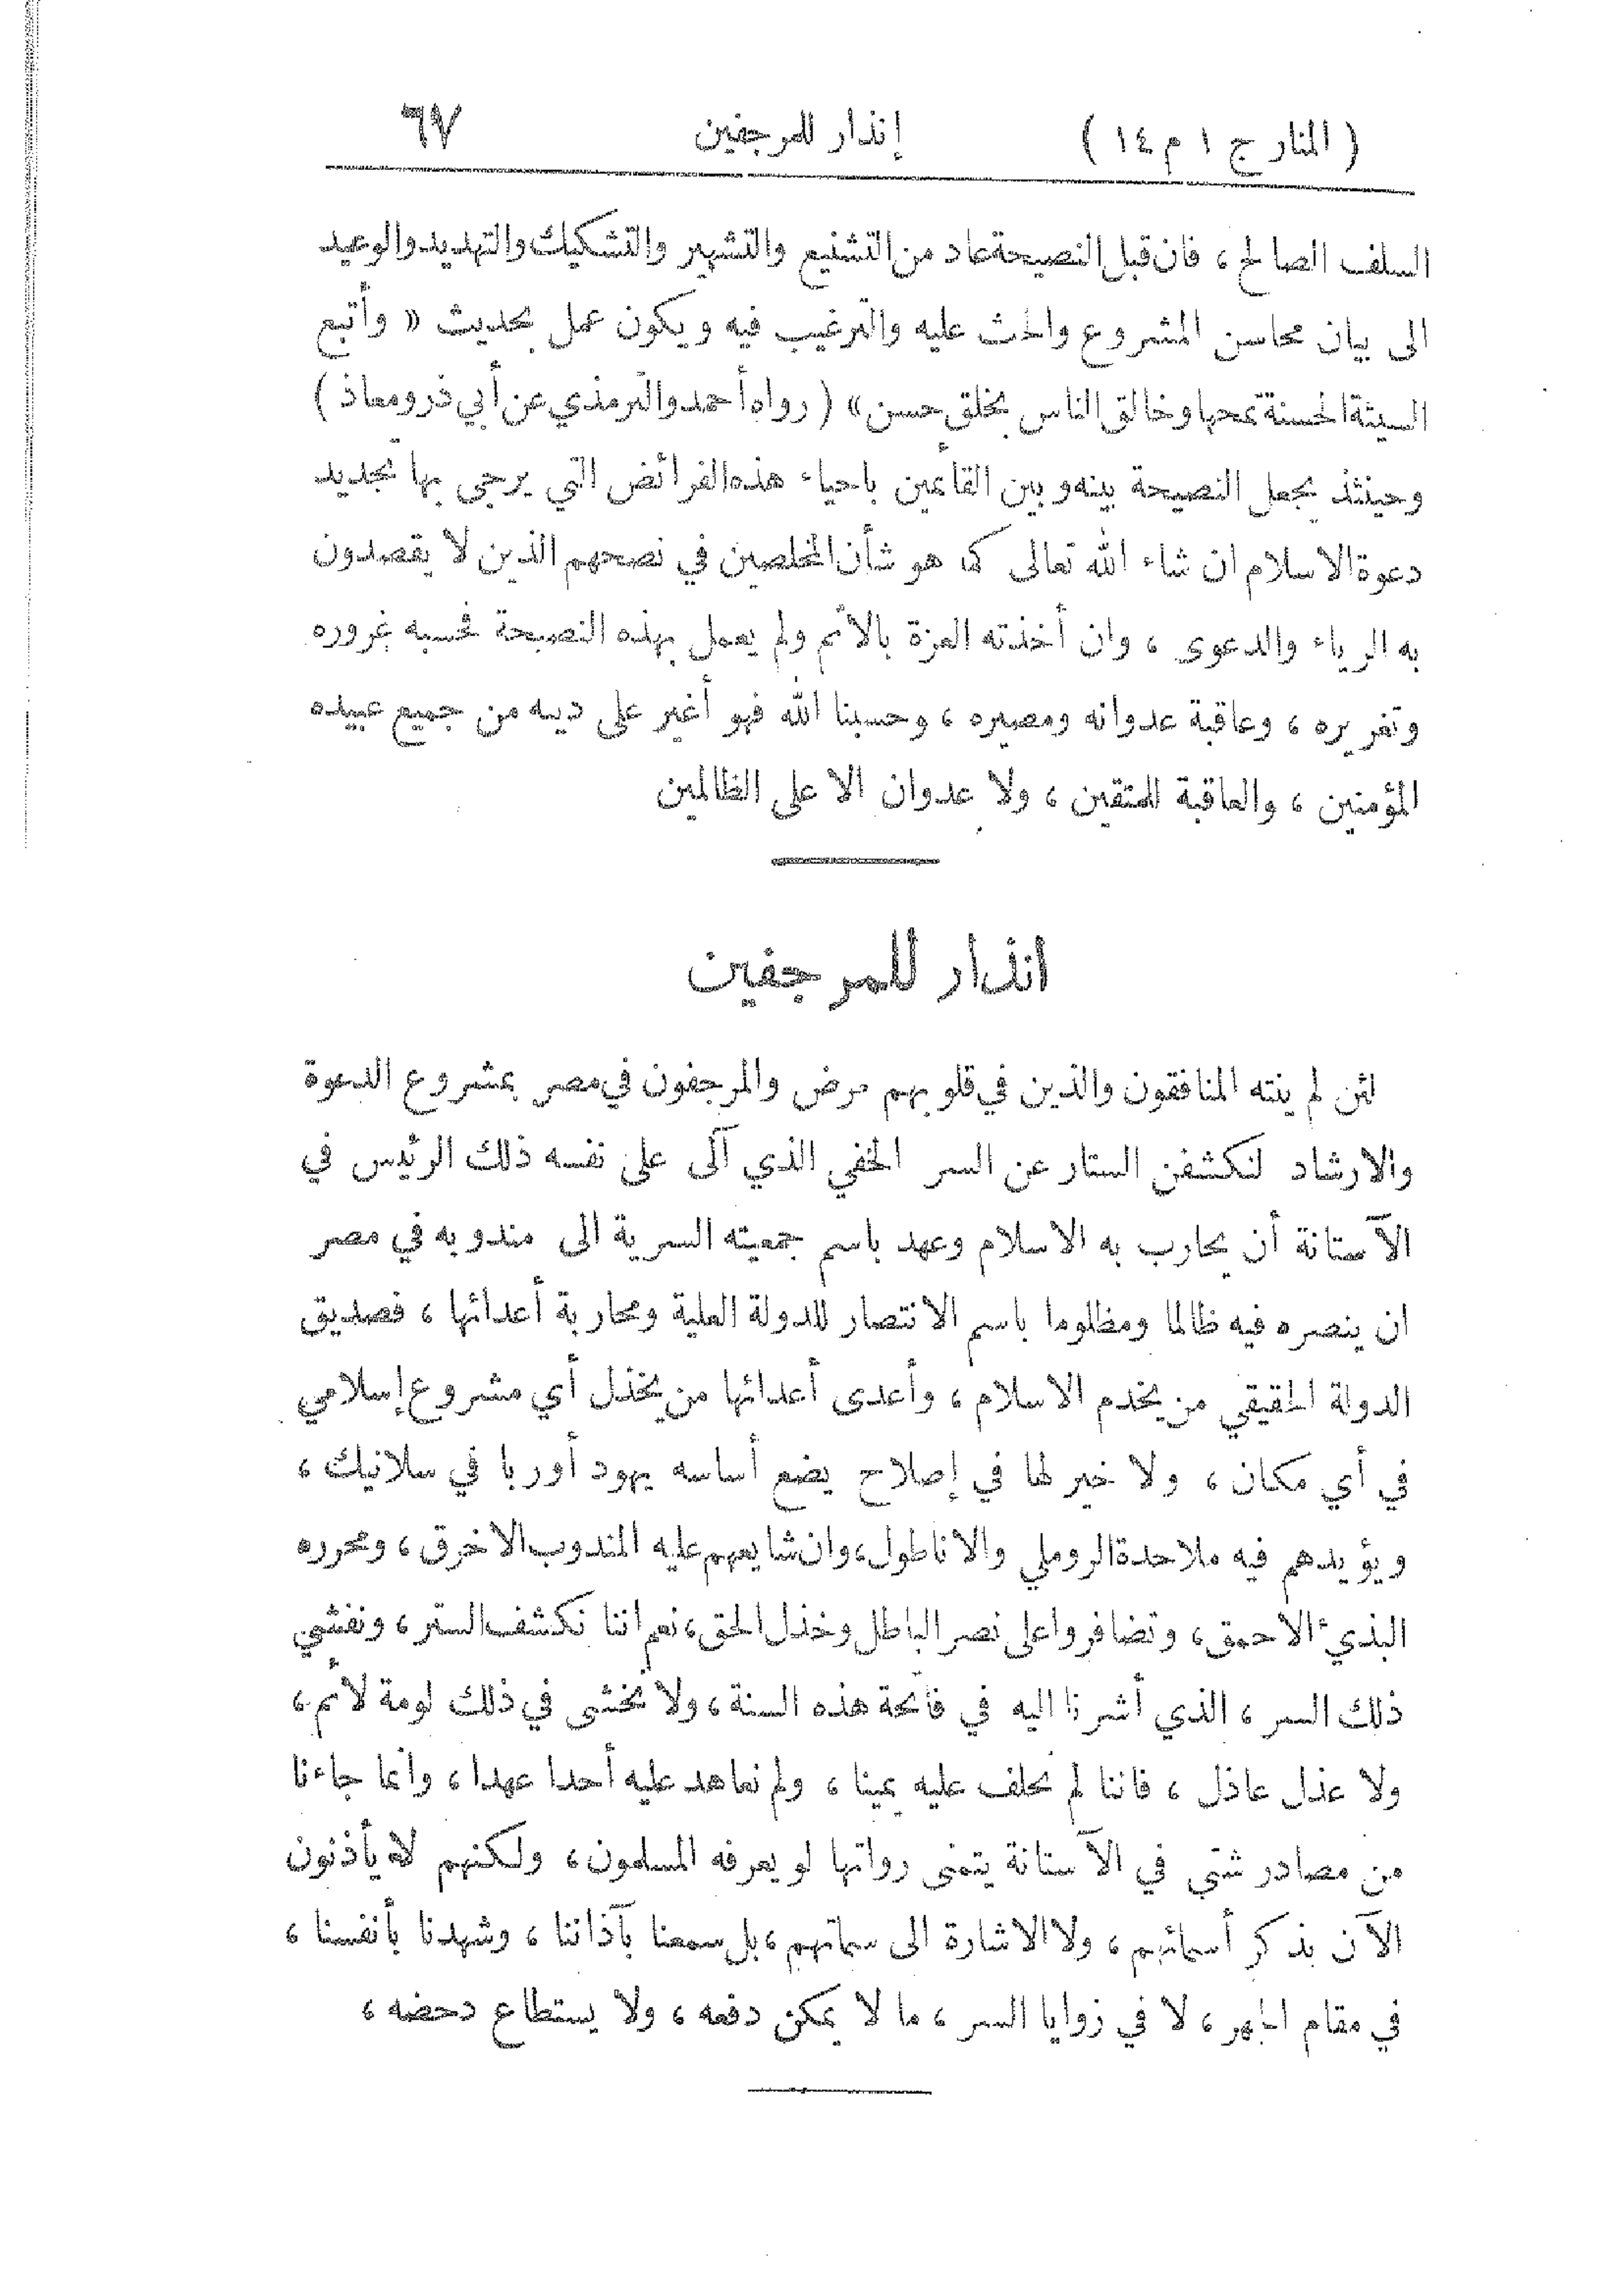 ( المنار ج ١ م ١٤ ) إنذار للمرجفين ٦٧
السلف الصالح ، فان قبل النصيحة عاد من التشنيع والتشهير والتشكيك والتهديد والوعيد
الى بيان محاسن المشروع والحث عليه والترغيب فيه ويكون عمل بحديث « وأتبع
السيئة الحسنة تمحها وخالق الناس بخلق حسن» ( رواه أحمد والترمذي عن أبي ذر ومعاذ )
وحينئذ يجعل النصيحة بينه وبين القائمين باحياء هذه الفرائض التي يرجى بها تجديد
دعوة الاسلام ان شاء الله تعالى كما هو شأن المخلصين في نصحهم الذين لا يقصدون
به الرياء والدعوى ، وان أخذته العزة بالاثم ولم يعمل بهذه النصيحة فحسبه غروره
وتغريره ، وعاقبة عدوانه ومصيره ، وحسبنا الله فهو أغير على دينه من جميع عبيده
المؤمنين ، والعاقبة للمتقين ، ولا عدوان الا على الظالمين
انذار للمرجفين
لئن لم ينته المنافقون والذين في قلوبهم مرض والمرجفون في مصر بمشروع الدعوة
والارشاد لنكشفن الستار عن السر الخفي الذي آلى على نفسه ذلك الرئيس في
الآستانة أن يحارب به الاسلام وعهد باسم جمعيته السرية الى مندوبه في مصر
ان ينصره فيه ظالما ومظلوما باسم الانتصار للدولة العلية ومحاربة أعدائها ، فصديق
الدولة الحقيقي من يخدم الاسلام ، وأعدى أعدائها من يخذل أي مشروع إسلامي
في أي مكان ، ولا خير لها في إصلاح يضع أساسه يهود أوربا في سلانيك ،
ويؤيدهم فيه ملاحدة الروملي والاناطول، وان شايعهم عليه المندوب الاخرق ، ومحرره
البذيء الاحمق ، وتضافروا على نصر الباطل وخذل الحق ، نعم اننا نكشف الستر ، ونفشي
ذلك السر ، الذي أشرنا اليه في فاتحة هذه السنة ، ولا نخشى في ذلك لومة لائم ،
ولا عذل عاذل ، فاننا لم نحلف عليه يمينا ، ولم نعاهد عليه أحدا عهدا ، وانما جاءنا
من مصادر شتى في الآستانة يتمنى رواتها لو يعرفه المسلمون ، ولكنهم لا يأذنون
الآن بذكر أسمائهم ، ولا الاشارة الى سماتهم ، بل سمعنا بآذاننا ، وشهدنا بأنفسنا ،
في مقام الجهر ، لا في زوايا السر ، ما لا يمكن دفعه ، ولا يستطاع دحضه ،